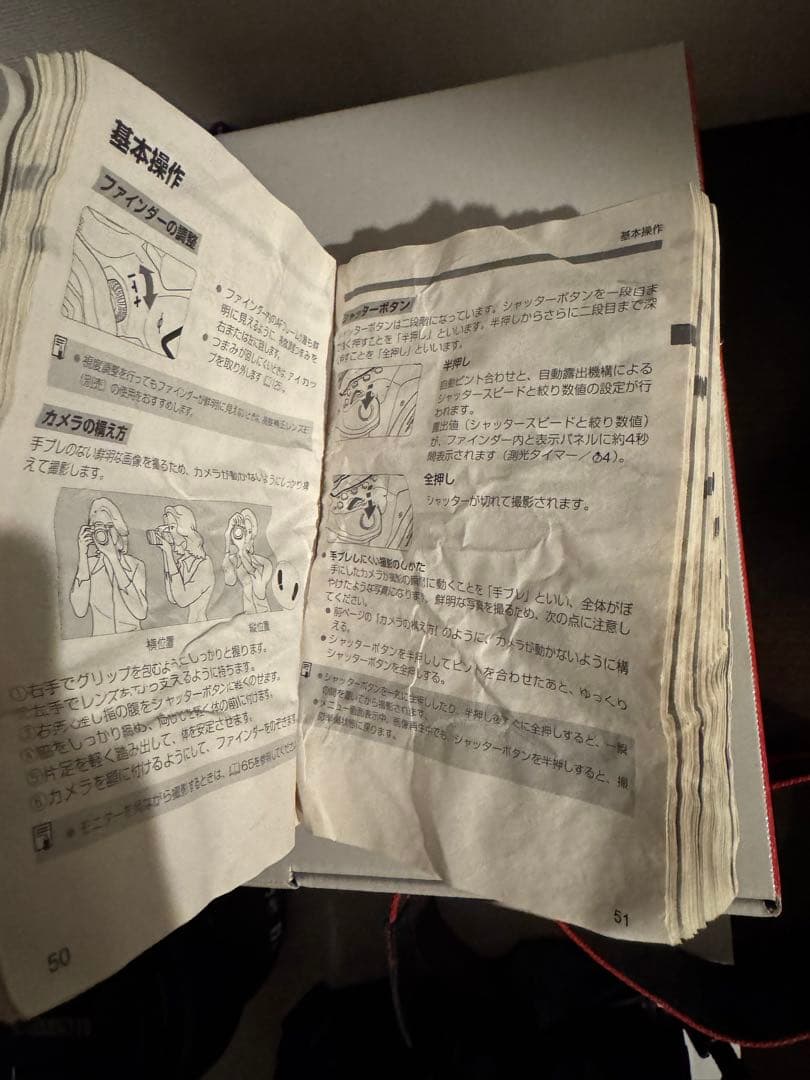 基本操作
ファインダーの調整
● ファインダー内のAFフレームが最も鮮
明に見えるように、視度調整つまみを
右または左に回します。
● つまみが回しにくいときは、アイカッ
プを取り外します
● 視度調整を行ってもファインダーが鮮明に見えないときは、視度補正レンズE
(別売)の使用をおすすめします。
カメラの構え方
手ブレのない鮮明な画像を撮るため、カメラが動かないようにしっかり構
えて撮影します。
横位置
縦位置
①右手でグリップを包むようにしっかりと握ります。
左手でレンズを下から支えるように持ちます。
③右手人差し指の腹をシャッターボタンに軽くのせます。
④脇をしっかり締め、両ひじを軽く体の前に付けます。
⑤片足を軽く踏み出して、体を安定させます。
⑥カメラを顔に付けるようにして、ファインダーをのぞきます
● モニターを見ながら撮影するときは、65を参照してください
50
基本操作
シャッターボタン
シャッターボタンは二段階になっています。シャッターボタンを一段目ま
で軽く押すことを「半押し」といいます。半押しからさらに二段目まで深
く押すことを「全押し」といいます。
半押し
自動ピント合わせと、自動露出機構による
シャッタースピードと絞り数値の設定が行
われます。
露出値(シャッタースピードと絞り数値)
が、ファインダー内と表示パネルに約4秒
間表示されます(測光タイマー/4)。
全押し
シャッターが切れて撮影されます。
● 手ブレしにくい撮影のしかた
手にしたカメラが撮影の瞬間に動くことを「手ブレ」といい、全体がぼ
やけたような写真になります。鮮明な写真を撮るため、次の点に注意し
てください。
● 前ページの「カメラの構え方」のように、カメラが動かないように構
える。
● シャッターボタンを半押ししてピントを合わせたあと、ゆっくり
シャッターボタンを全押しする。
● シャッターボタンを一気に全押ししたり、半押し後すぐに全押しすると、一瞬
の間を置いてから撮影されます。
● メニュー画面表示中、画像再生中でも、シャッターボタンを半押しすると、撮
の準備状態に戻ります。
51